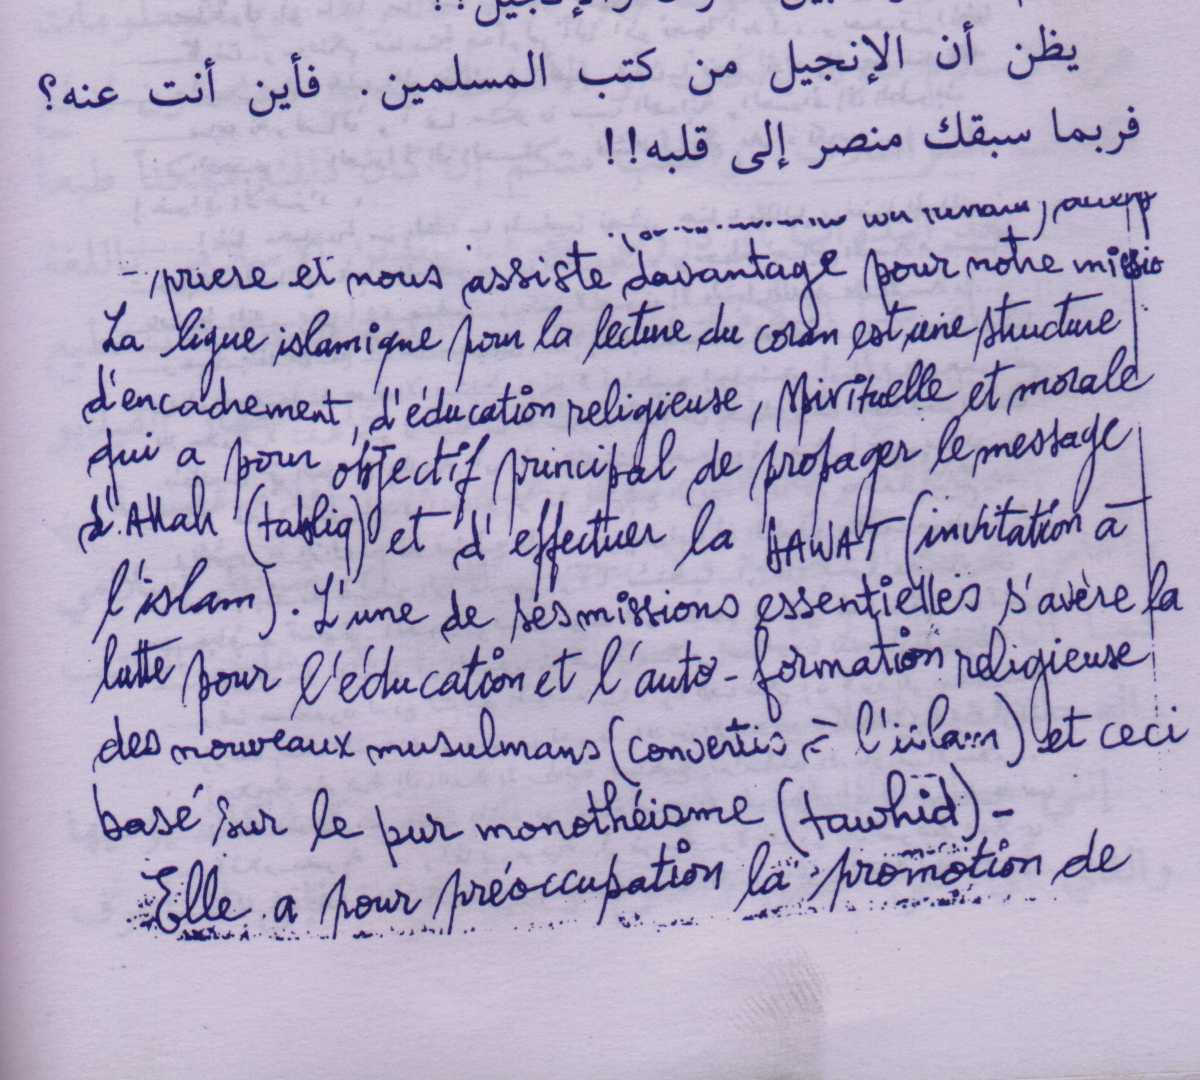 والإنجيل!!
يظن أن الإنجيل من كتب المسلمين. فأين أنت عنه؟
فربما سبقك منصر إلى قلبه!!
prière et nous assiste davantage pour notre missio
La ligue islamique pour la lecture du coran est une structure
d'encadrement, d'éducation religieuse, spirituelle et morale
qui a pour objectif principal de propager le message
d'Allah (tabliq) et d'effectuer la DAWAT (invitation à
l'islam). L'une de ses missions essentielles s'avère la
lutte pour l'éducation et l'auto-formation religieuse
des nouveaux musulmans (convertis à l'islam) et ceci
basé sur le pur monothéisme (tawhid) -
Elle a pour préoccupation la promotion de